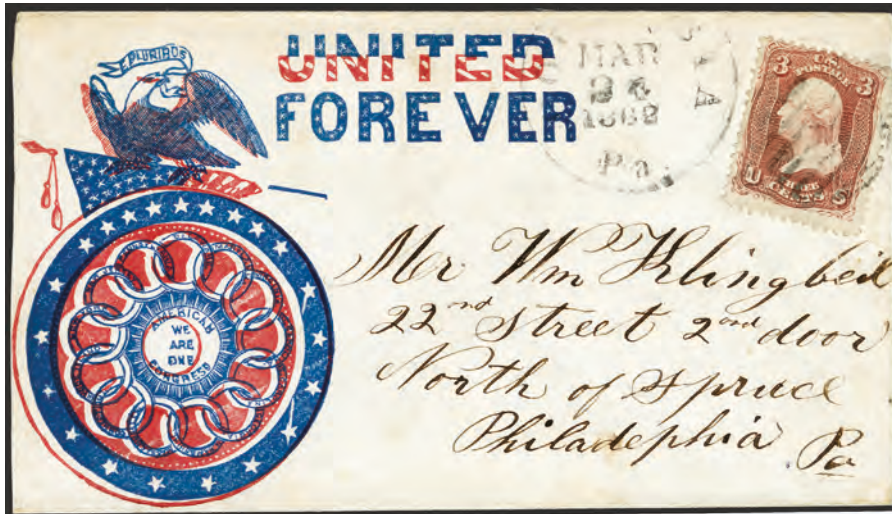 E PLURIBUS
UNITED
FOREVER
MAR
24
1862
Pa
3 3
U.S.
POSTAGE
AMERICAN
WE
ARE
ONE
CONGRESS
Mr Wm Klingbeil
22nd Street 2nd door
North of Spruce
Philadephia Pa